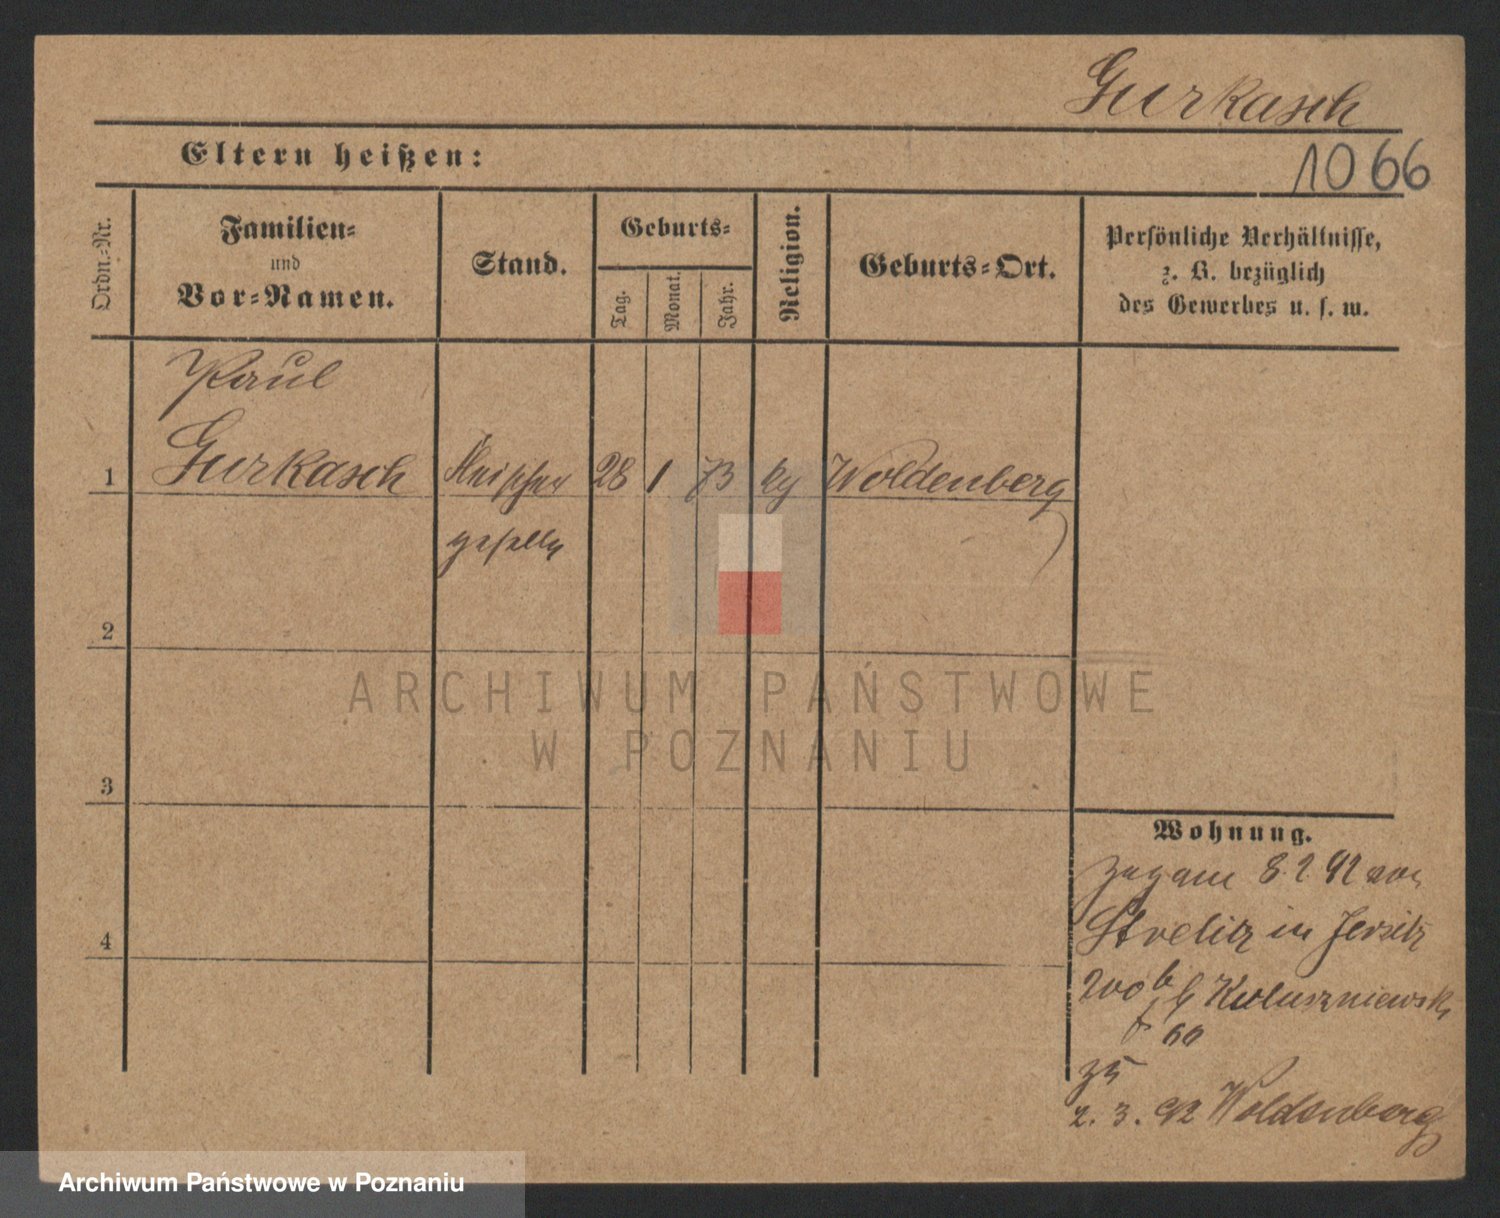 Gurkasch
1066
Eltern heißen:
Ordn.-Nr.
Familien-
und
Vor-Namen.
Stand.
Geburts-
Tag.
Monat.
Jahr.
Religion.
Geburts-Ort.
Persönliche Verhältnisse,
z. B. bezüglich
des Gewerbes u. s. w.
Paul
1 Gurkasch 28 1 73 Woldenberg
geselle
2
3
4
Wohnung.
8. 2 92
Strelitz in Jersitz
b
60
2. 3. 92 Woldenberg
ARCHIWUM PAŃSTWOWE
W POZNANIU
Archiwum Państwowe w Poznaniu